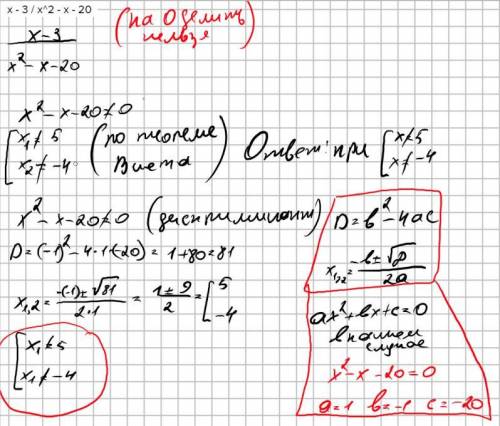 x - 3 / x^2 - x - 20
(на 0 делить
нельзя)
x-3
x²-x-20
x²-x-20≠0
[x₁≠5
x₂≠-4
(по теореме
Виета)
Ответ: при [x≠5
x≠-4
x²-x-20≠0 (дискриминант)
D=(-1)²-4·1·(-20)=1+80=81
x₁,₂=-(-1)±√81/2·1=1±9/2=[5
-4
[x₁≠5
x₁≠-4
D=b²-4ac
x₁,₂=-b±√D/2a
ax²+bx+c=0
в нашем
случае
x²-x-20=0
a=1 b=-1 c=-20